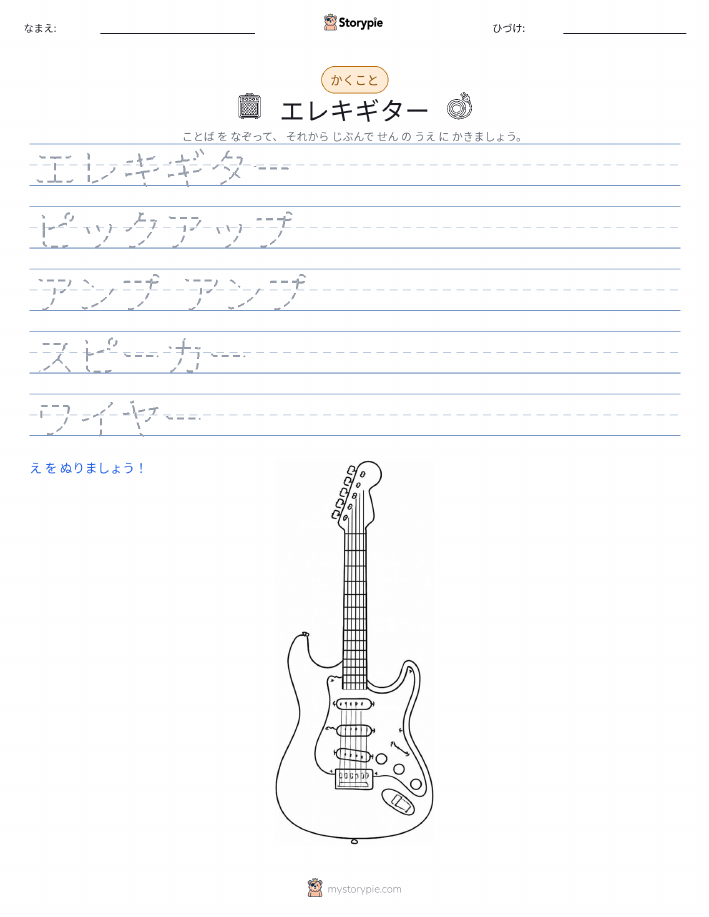 なまえ:
Storypie
ひづけ:
かくこと
エレキギター
ことば を なぞって、 それから じぶんで せん の うえ に かきましょう。
エレキギター
ピックアップ
アンプ アンプ
スピーカー
ワイヤー
え を ぬりましょう！
mystorypie.com